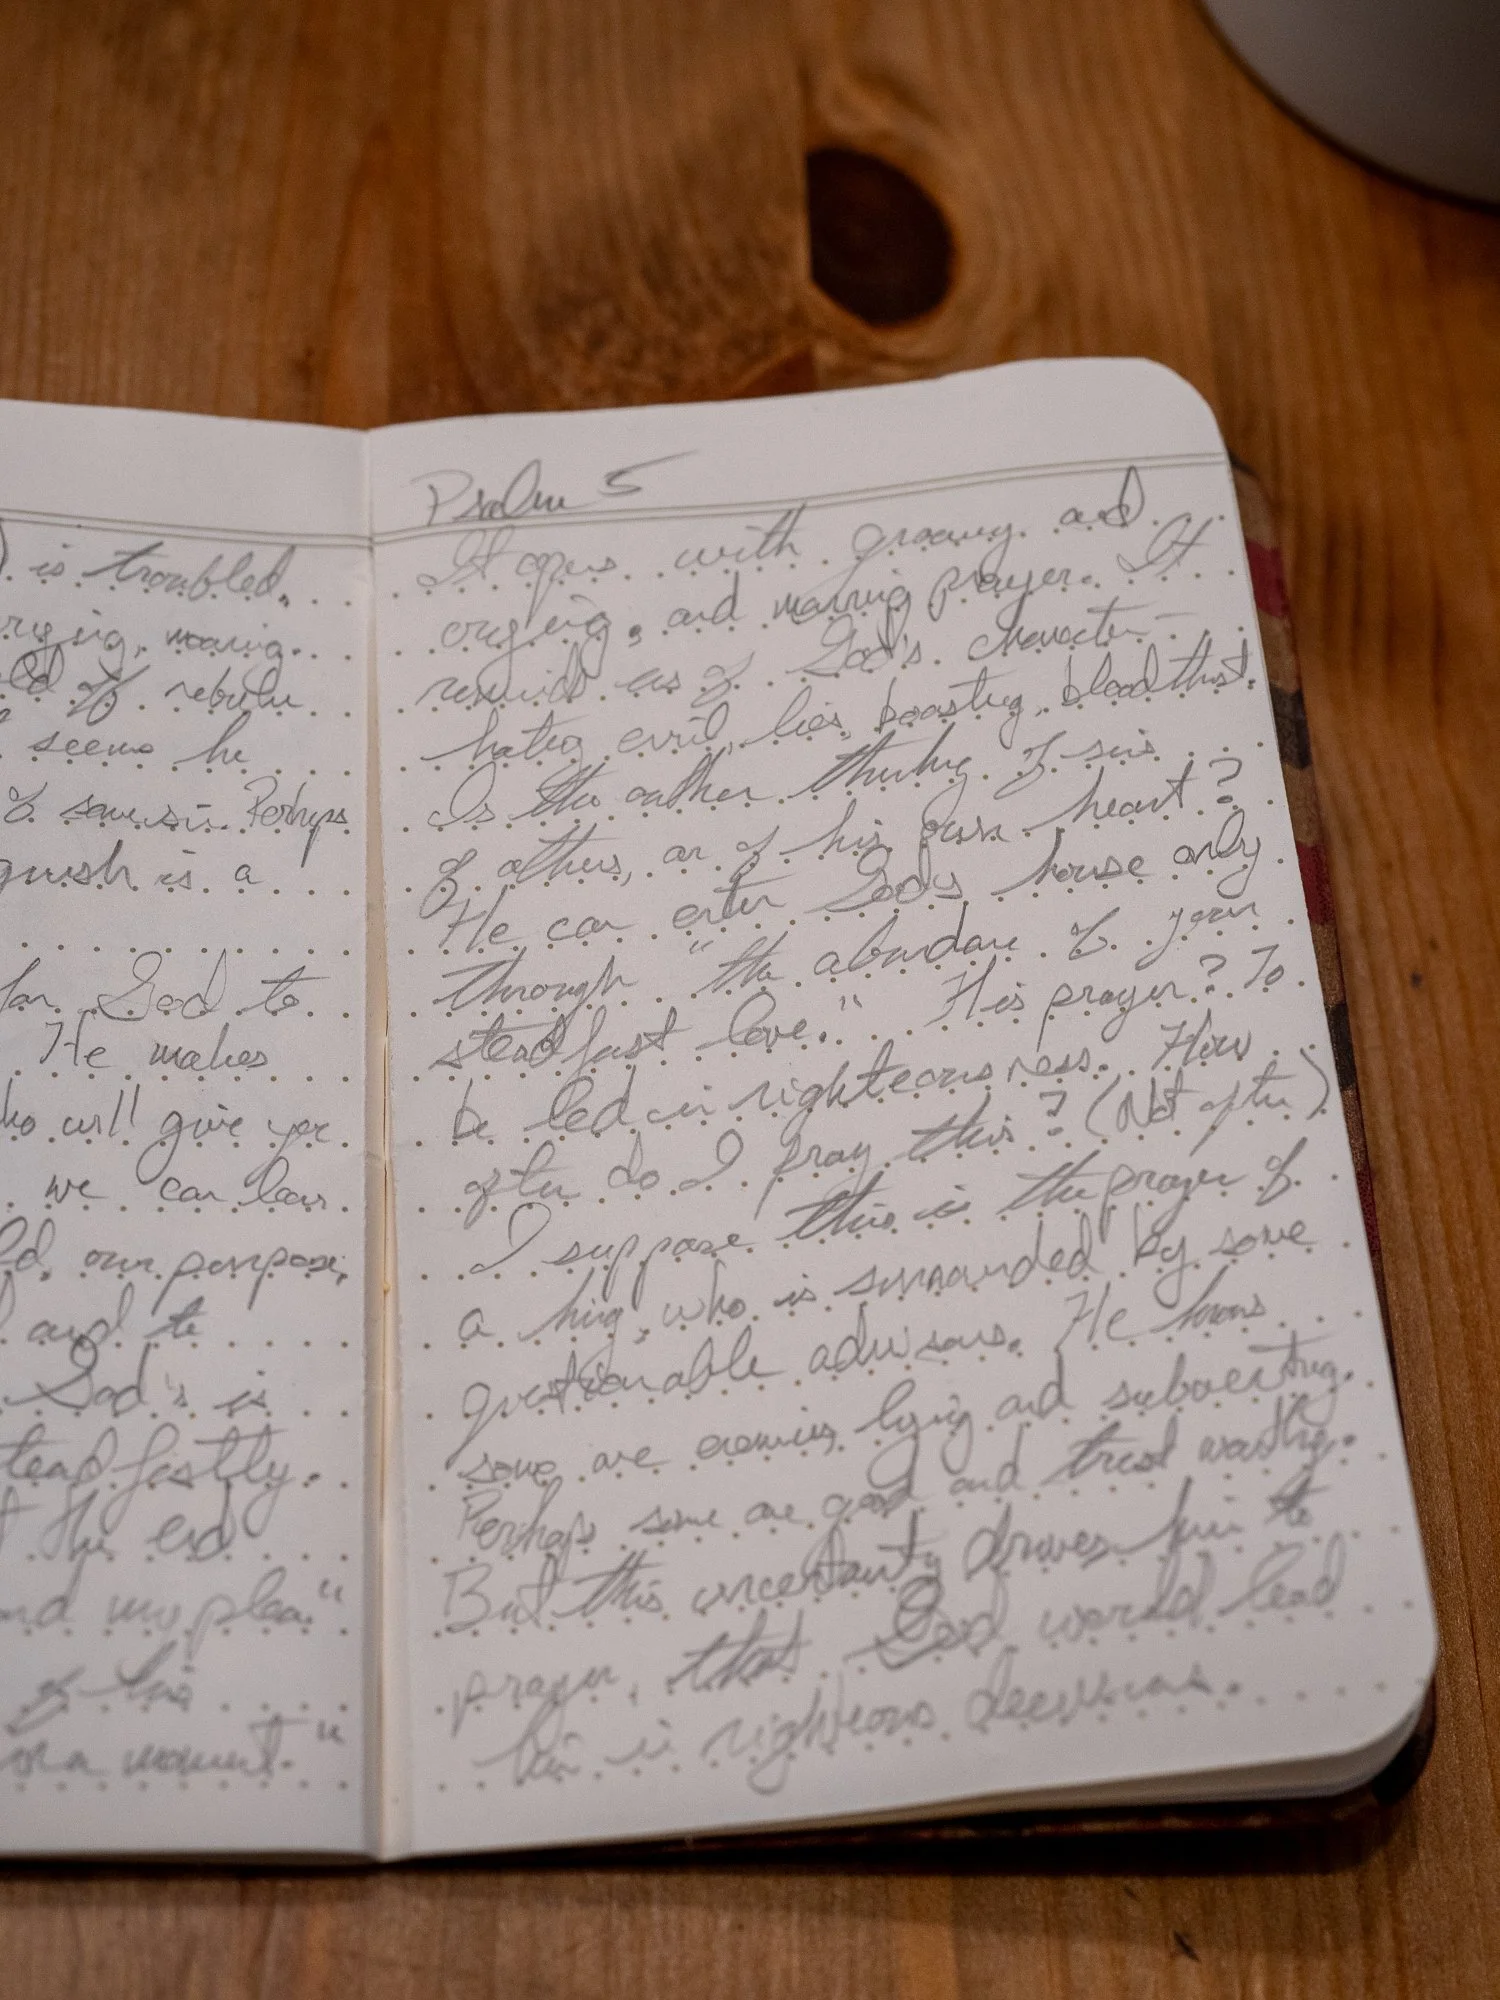 is troubled,
crying, moaning.
of rebuke
seems he
of some sin. Perhaps
anguish is a
for God to
He makes
who will give you
we can learn
our purpose,
and to
God's is
steadfastly.
the end
and my plea."
of his
for a moment."
Psalm 5
It opens with groaning and
crying, and morning prayer. It
reminds us of God's character—
hating evil, lies, boasting, bloodthirst.
Is the author thinking of sins
of others, or of his own heart?
He can enter God's house only
through "the abundance of your
steadfast love." His prayer? To
be led in righteousness. How
often do I pray this? (Not often)
I suppose this is the prayer of
a king, who is surrounded by some
questionable advisors. He knows
some are enemies, lying and subverting.
Perhaps some are good and trustworthy.
But this uncertainty drives him to
prayer, that God would lead
him in righteous decisions.